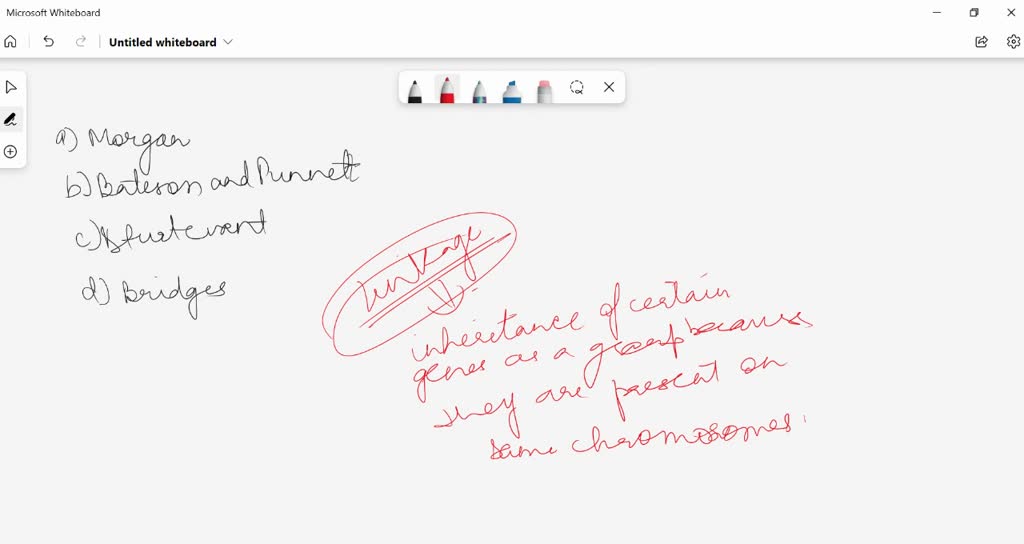 Microsoft Whiteboard
Untitled whiteboard
a) Morgan
b) Bateson and Punnett
c) Sturtevent
d) Bridges
linkage
inheritance of certain
genes as a group because
they are present on
same chromosomes.